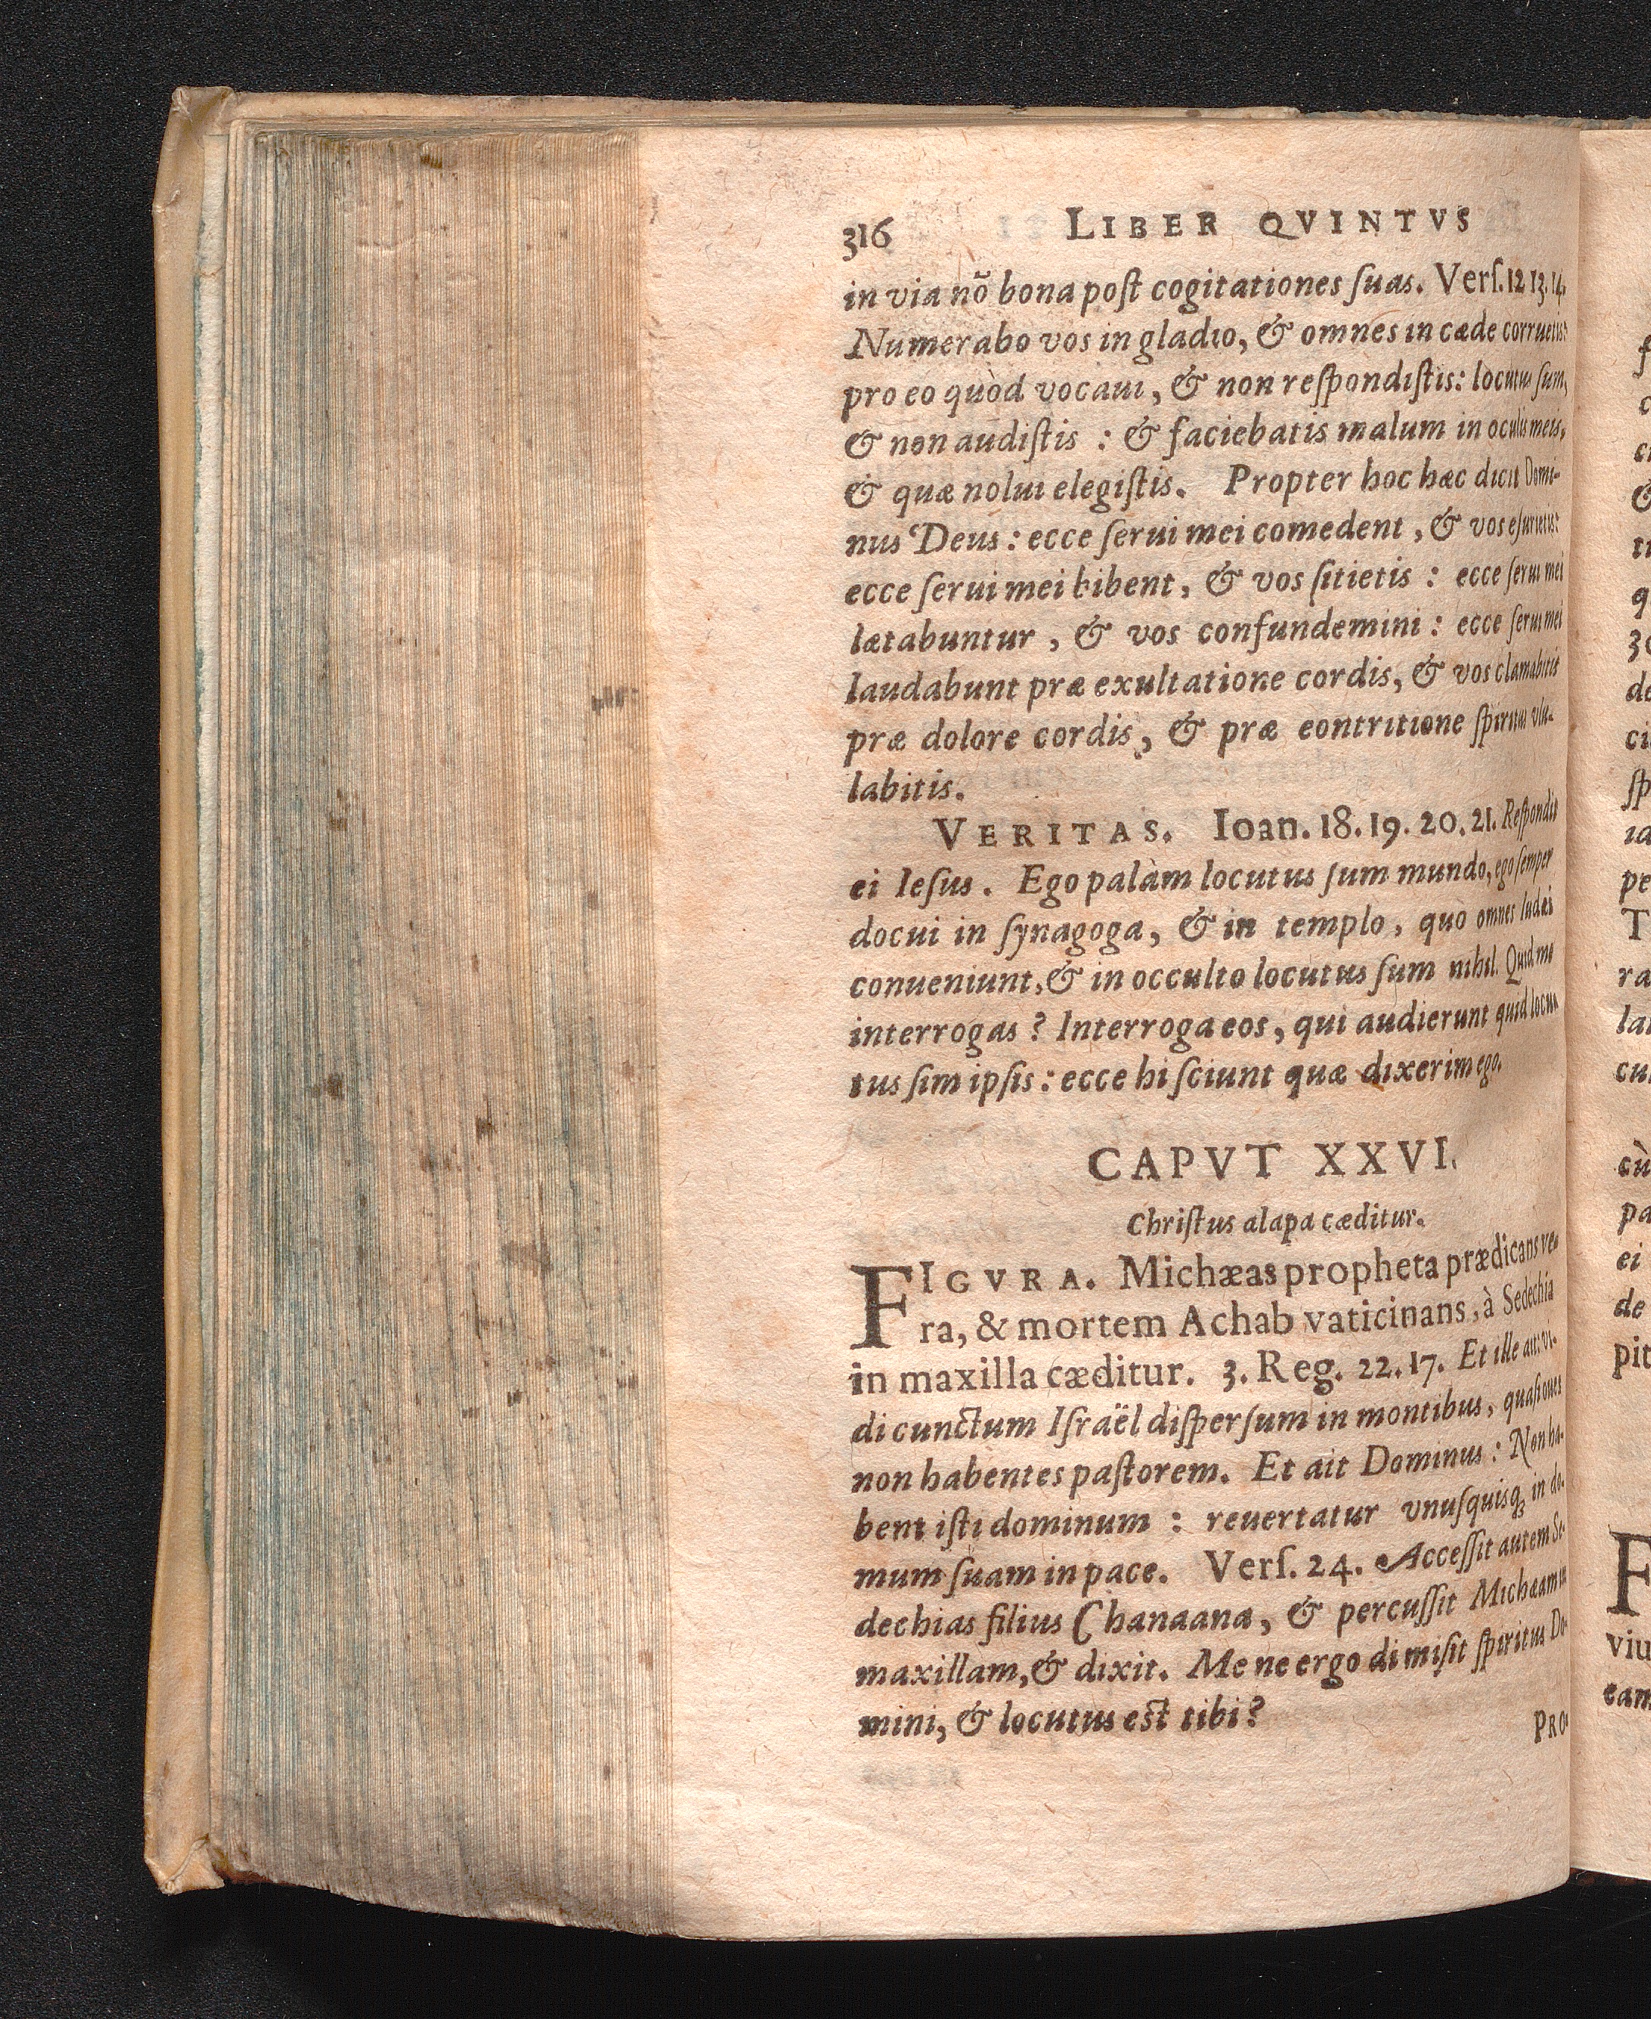 316 LIBER QVINTVS
in via nõ bona post cogitationes suas. Vers. 12 13. 14.
Numerabo vos in gladio, & omnes in cæde corruetis:
pro eo quòd vocaui, & non respondistis: locutus sum,
& non audistis : & faciebatis malum in oculis meis,
& quæ nolui elegistis. Propter hoc hæc dicit Domi-
nus Deus: ecce serui mei comedent, & vos esurietis:
ecce serui mei bibent, & vos sitietis : ecce serui mei
lætabuntur, & vos confundemini : ecce serui mei
laudabunt præ exultatione cordis, & vos clamabitis
præ dolore cordis, & præ eontritione spiritus vlu-
labitis.
VERITAS. Ioan. 18. 19. 20. 21. Respondit
ei Iesus. Ego palàm locutus sum mundo, ego semper
docui in synagoga, & in templo, quò omnes Iudæi
conueniunt, & in occulto locutus sum nihil. Quid me
interrogas? Interroga eos, qui audierunt quid locu-
tus sim ipsis: ecce hi sciunt quæ dixerim ego.
CAPVT XXVI.
Christus alapa cæditur.
FIGVRA. Michæas propheta prædicans ve-
ra, & mortem Achab vaticinans, à Sedechia
in maxilla cæditur. 3. Reg. 22. 17. Et ille ait: vi-
di cunctum Israël dispersum in montibus, quasi oues
non habentes pastorem. Et ait Dominus: Non ha-
bent isti dominum : reuertatur vnusquisq; in do-
mum suam in pace. Vers. 24. Accessit autem Se-
dechias filius Chanaana, & percussit Michæam in
maxillam, & dixit. Me ne ergo dimisit spiritus Do-
mini, & locutus est tibi?
PRO-
3
de
sp
pe
T
ra
cu
cù
pa
ei
de
pit
F
viu
eam